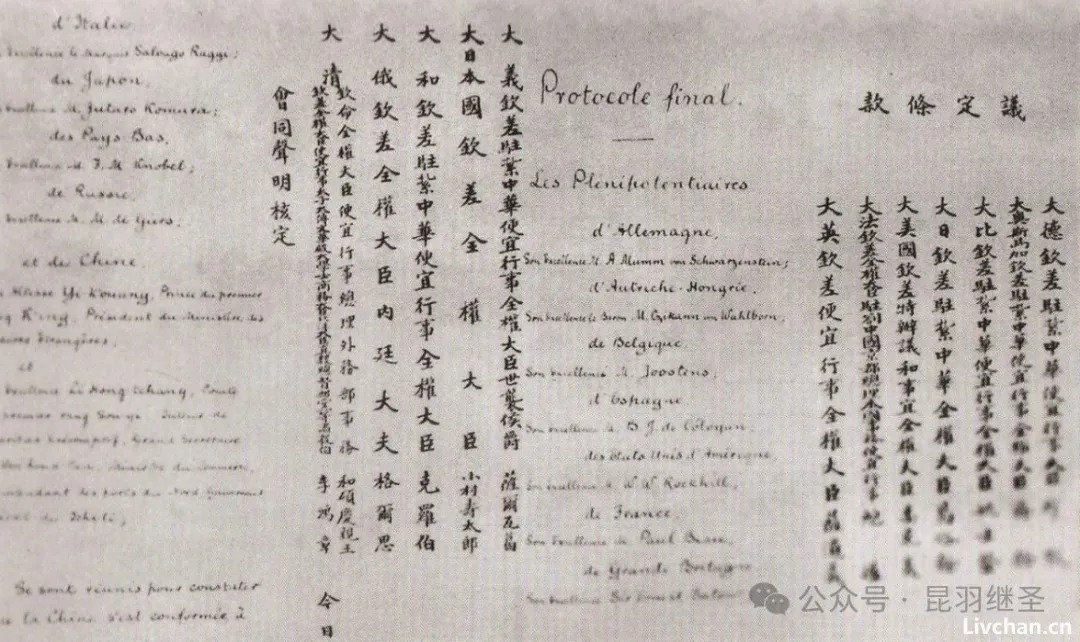 議定條款
大德欽差駐紮中華便宜行事大臣
大奧斯馬加欽差駐紮中華便宜行事全權大臣
大比欽差駐紮中華便宜行事全權大臣
大日欽差駐紮中華全權大臣
大美國欽差特辦議和事宜全權大臣
大法欽差全權大臣駐劄中國京都總理本國事務便宜行事
大英欽差便宜行事全權大臣薩道義
Protocole final.
Les Plénipotentiaires
d'Allemagne,
Son Excellence M. A. Mumm von Schwarzenstein;
d'Autriche-Hongrie,
Son Excellence le Baron M. Czikann von Wahlborn;
de Belgique,
Son Excellence M. Joostens;
d'Espagne
Son Excellence M. B. J. de Cologan;
des Etats Unis d'Amérique,
Son Excellence M. W. W. Rockhill;
de France,
Son Excellence M. Paul Beau;
de Grande Bretagne
Son Excellence Sir Ernest Satow
大義欽差駐紮中華便宜行事全權大臣世襲侯爵薩爾瓦葛
大日本國欽差全權大臣小村寿太郎
大和欽差駐紮中華便宜行事全權大臣克羅伯
大俄欽差全權大臣內廷大夫格爾思
大清
欽命全權大臣便宜行事總理外務部事務和碩慶親王
欽差全權大臣便宜行事李鴻章
會同聲明核定
今日
d'Italie
Excellence le Marquis Salvago Raggi;
du Japon,
Excellence M. Jutaro Komura;
des Pays-Bas,
Excellence M. F. M. Knobel;
de Russie,
Excellence M. M. de Giers;
et de Chine,
Altesse Yi-K'ouang, Prince du premier
K'ing, Président du Ministère des
Etrangères,
et
Excellence Li Hong-tchang, Comte
premier rang Sou-yi, Tuteur de
Présomptif, Grand Secrétaire
Ministre du Commerce,
des ports du Nord, Gouverneur
du Tcheli,
Se sont réunis pour constater
que la Chine s'est conformée à
公众号 · 昆羽继圣
Livchan.cn